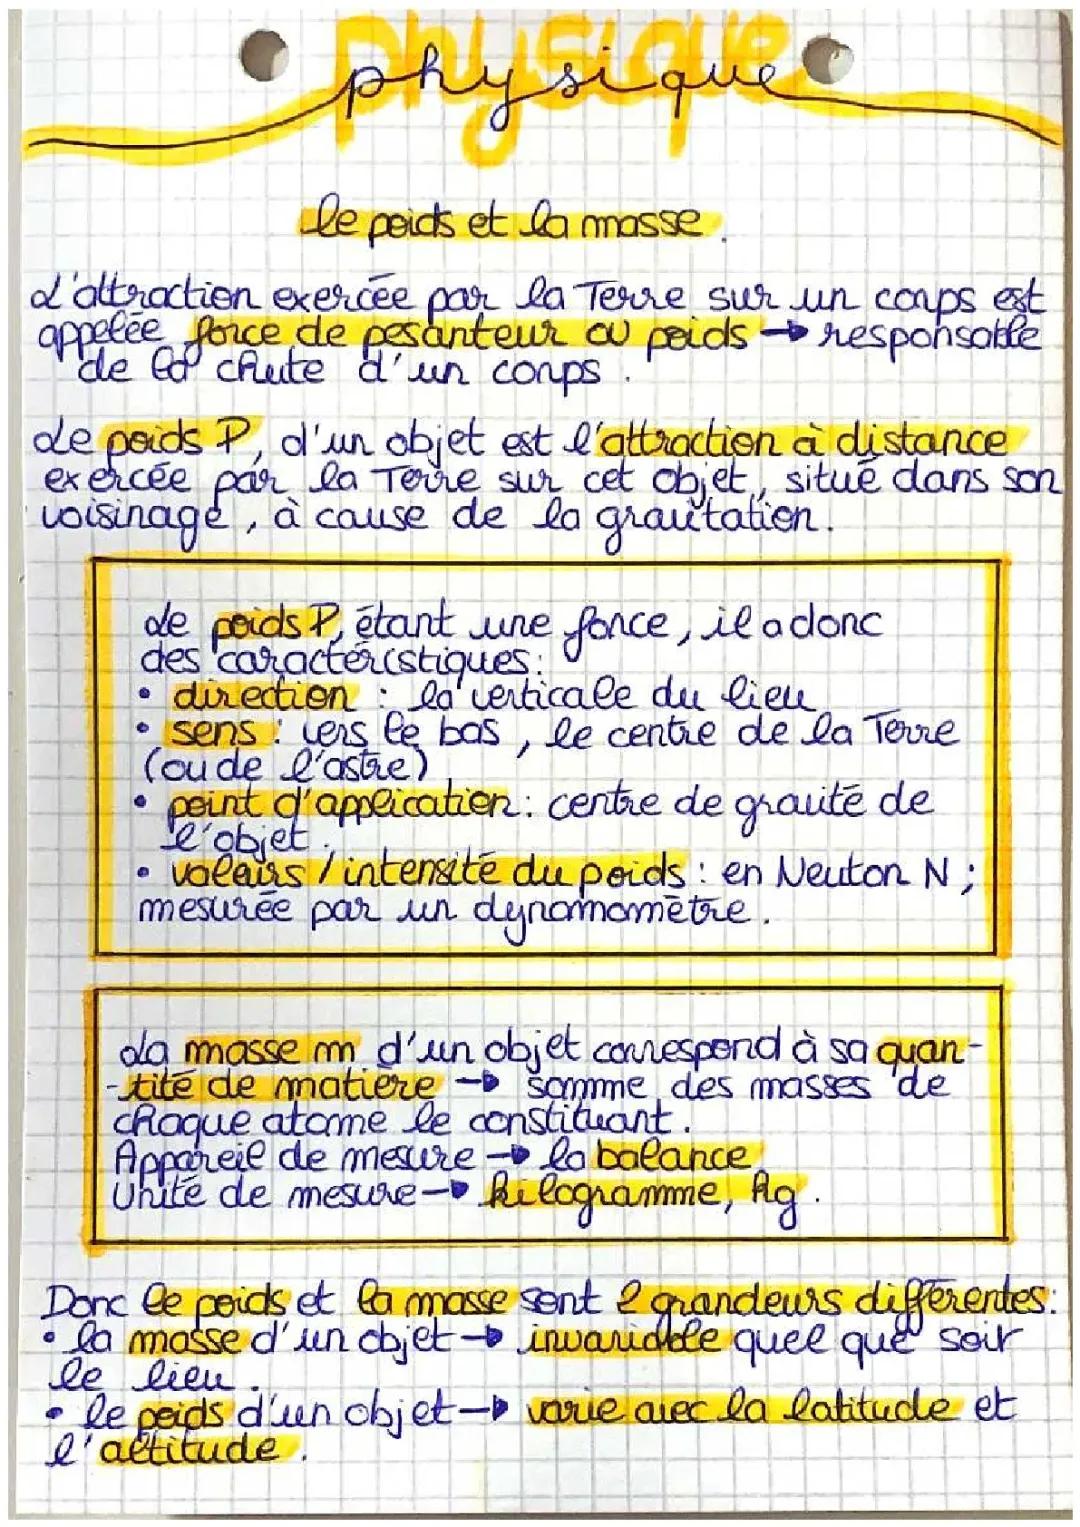 physique
physique
le poids et la masse.
L'attraction exercée par la Terre sur un corps est
appelée force de pesanteur ou poids → responsable
de la chute d'un corps.
Le poids P, d'un objet est l'attraction à distance
exercée par la Terre sur cet objet, situé dans son
voisinage, à cause de la gravitation.
Le poids P, étant une force, il a donc
des caractéristiques:
• direction : la verticale du lieu
• sens : vers le bas, le centre de la Terre
(ou de l'astre)
• point d'application: centre de gravité de
l'objet.
• valeurs / intensité du poids : en Neuton N ;
mesurée par un dynamomètre.
La masse m d'un objet correspond à sa quan-
-tité de matière → somme des masses de
chaque atome le constituant.
Appareil de mesure → la balance
Unité de mesure → kilogramme, kg.
Donc le poids et la masse sont 2 grandeurs différentes:
• la masse d'un objet → invariable quel que soit
le lieu.
• le poids d'un objet → varie avec la latitude et
l'altitude.